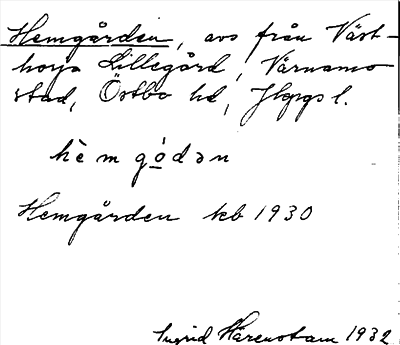 Hemgården, avs från Väst-
horja Lillegård, Värnamo
stad, Östbo hd, Jkpgs l.
hè m gó̲dən
Hemgården kb 1930
Ingrid Härenstam 1932